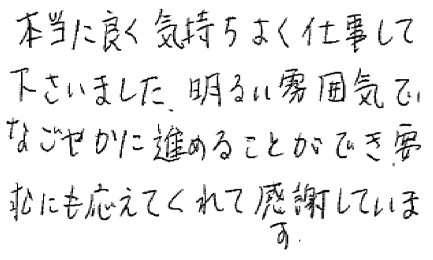 本当に良く気持ちよく仕事して
下さいました。明るい雰囲気で、
なごやかに進めることができ、要
求にも応えてくれて感謝していま
す。